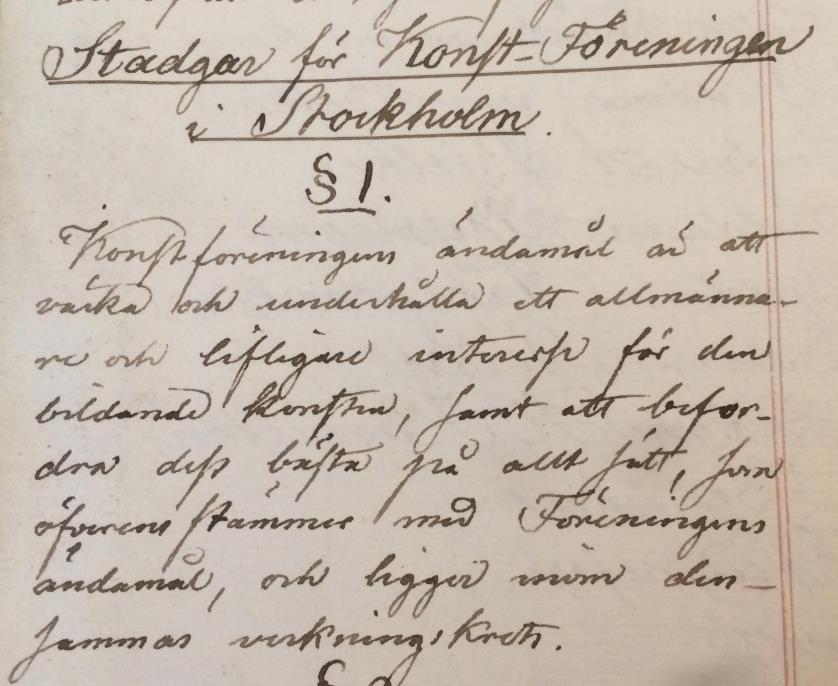 Stadgar för Konst-Föreningen
i Stockholm.
§ 1.
Konstföreningens ändamål är att
väcka och underhålla ett allmänna-
re och lifligare interesse för den
bildande konsten, samt att befor-
dra dess bästa på allt sätt, som
öfverensstämmer med Föreningens
ändamål, och ligger inom den-
sammas verkningskrets.